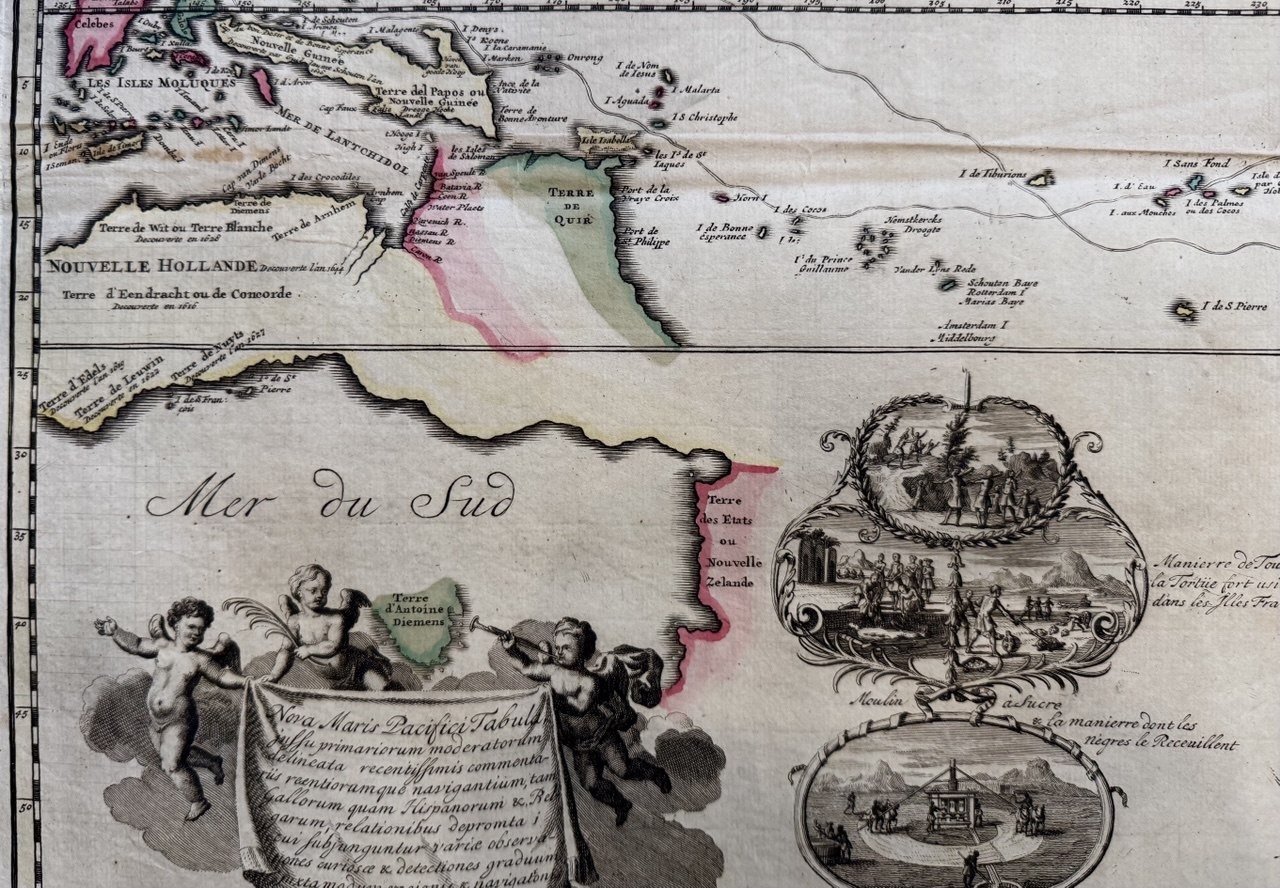 135
165
205
215
220
225
230
Celebes
LES ISLES MOLUQUES
I de Schouten
Nouvelle Guinée
I Malagente
I Denys
I.ˢ Koons
I la Caramanie
I Marken
Onrong
I de Nom
de Iesus
I Malarta
I Aguada
I S Christophe
Terre del Papos ou
Nouvelle Guinée
Terre de
Bonne Avonture
Cap Faux
I d'Arow
MER DE LANTCHIDOL
t'Hooge I
High I
les Isles
de Salomon
Isle Isabella
les I.ˢ de S.ᵗ
Iaques
5
10
15
20
25
30
35
40
45
50
Isle de Timor
Cap van Diemens
I des Crocodiles
Terre de
Diemens
Terre de Arnhem
Arnhem
Cap
van Speult R
Batavia R
Coen R
Water Plaets
Nassau R
Diemens R
Caron R
TERRE
DE
QUIR
Port de la
Vraye Croix
Port de
S.ᵗ Philippe
Horn I
I de Bonne
Esperance
I des Cocos
I.ˢ du Prince
Guillaume
Hemskercks
Droogte
Vander Lyns Rede
Schouten Baye
Rotterdam I
Marias Baye
Amsterdam I
Middelbourg
I de Tiburions
I Sans Fond
I. d'Eau
I. aux Mouches
I des Palmes
ou des Cocos
I de S Pierre
Terre de Wit ou Terre Blanche
Decouverte en 1628
NOUVELLE HOLLANDE Decouverte l'an 1644
Terre d'Eendracht ou de Concorde
Decouverte en 1616
Terre d'Edels
Decouverte l'an 1619
Terre de Leuwin
Decouverte en 1622
Terre de Nuyts
Decouverte l'an 1627
I de S Fran:
çois
I.ˢ de S.ᵗ
Pierre
Mer du Sud
Terre
des Etats
ou
Nouvelle
Zelande
Terre
d'Antoine
Diemens
Manierre de Tou
la Tortüe fort usi
dans les Jlles Fra
Moulin à Sucre
& la manierre dont les
nègres le Receuillent
Nova Maris Pacifici Tabula
jussu primariorum moderatorum
delineata recentissimis commenta-
riis recntiorumque navigantium, tam
Gallorum quam Hispanorum & Bel
garum, relationibus depromta i
cui subjunguntur variæ observa-
tiones curiosæ & detectiones graduum